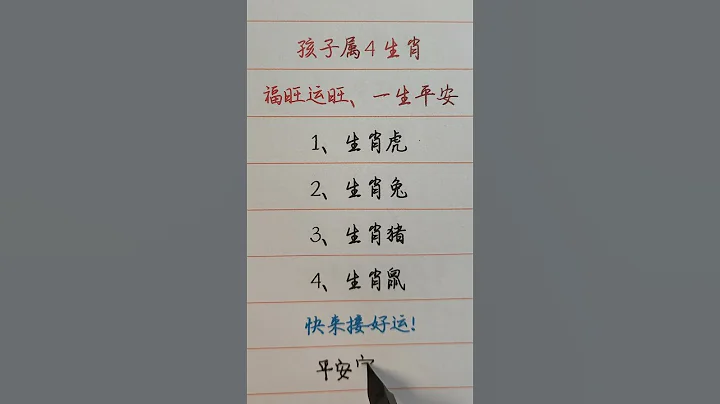 孩子属4生肖
福旺运旺、一生平安
1、生肖虎
2、生肖兔
3、生肖猪
4、生肖鼠
快来接好运!
平安